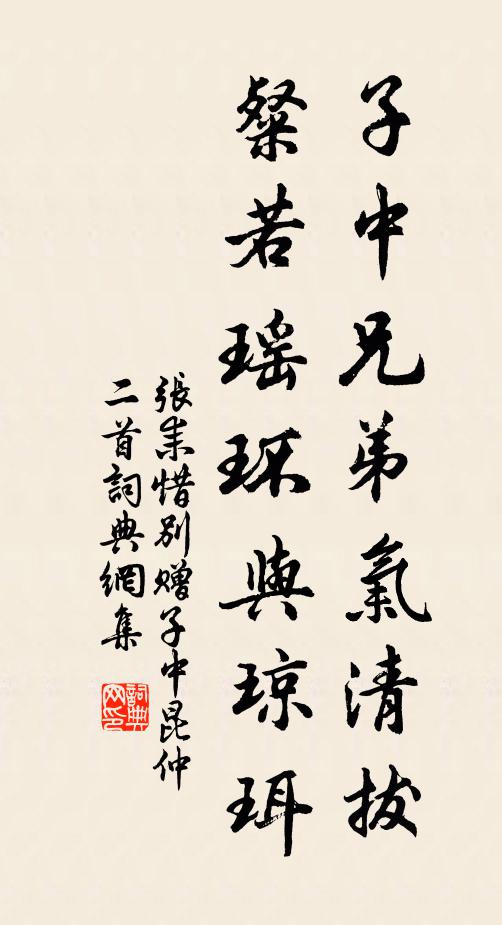 子中兄弟氣清拔
粲若瑶环與琼珥
張耒惜别赠子中昆仲
二首詞典網集
詞典网印